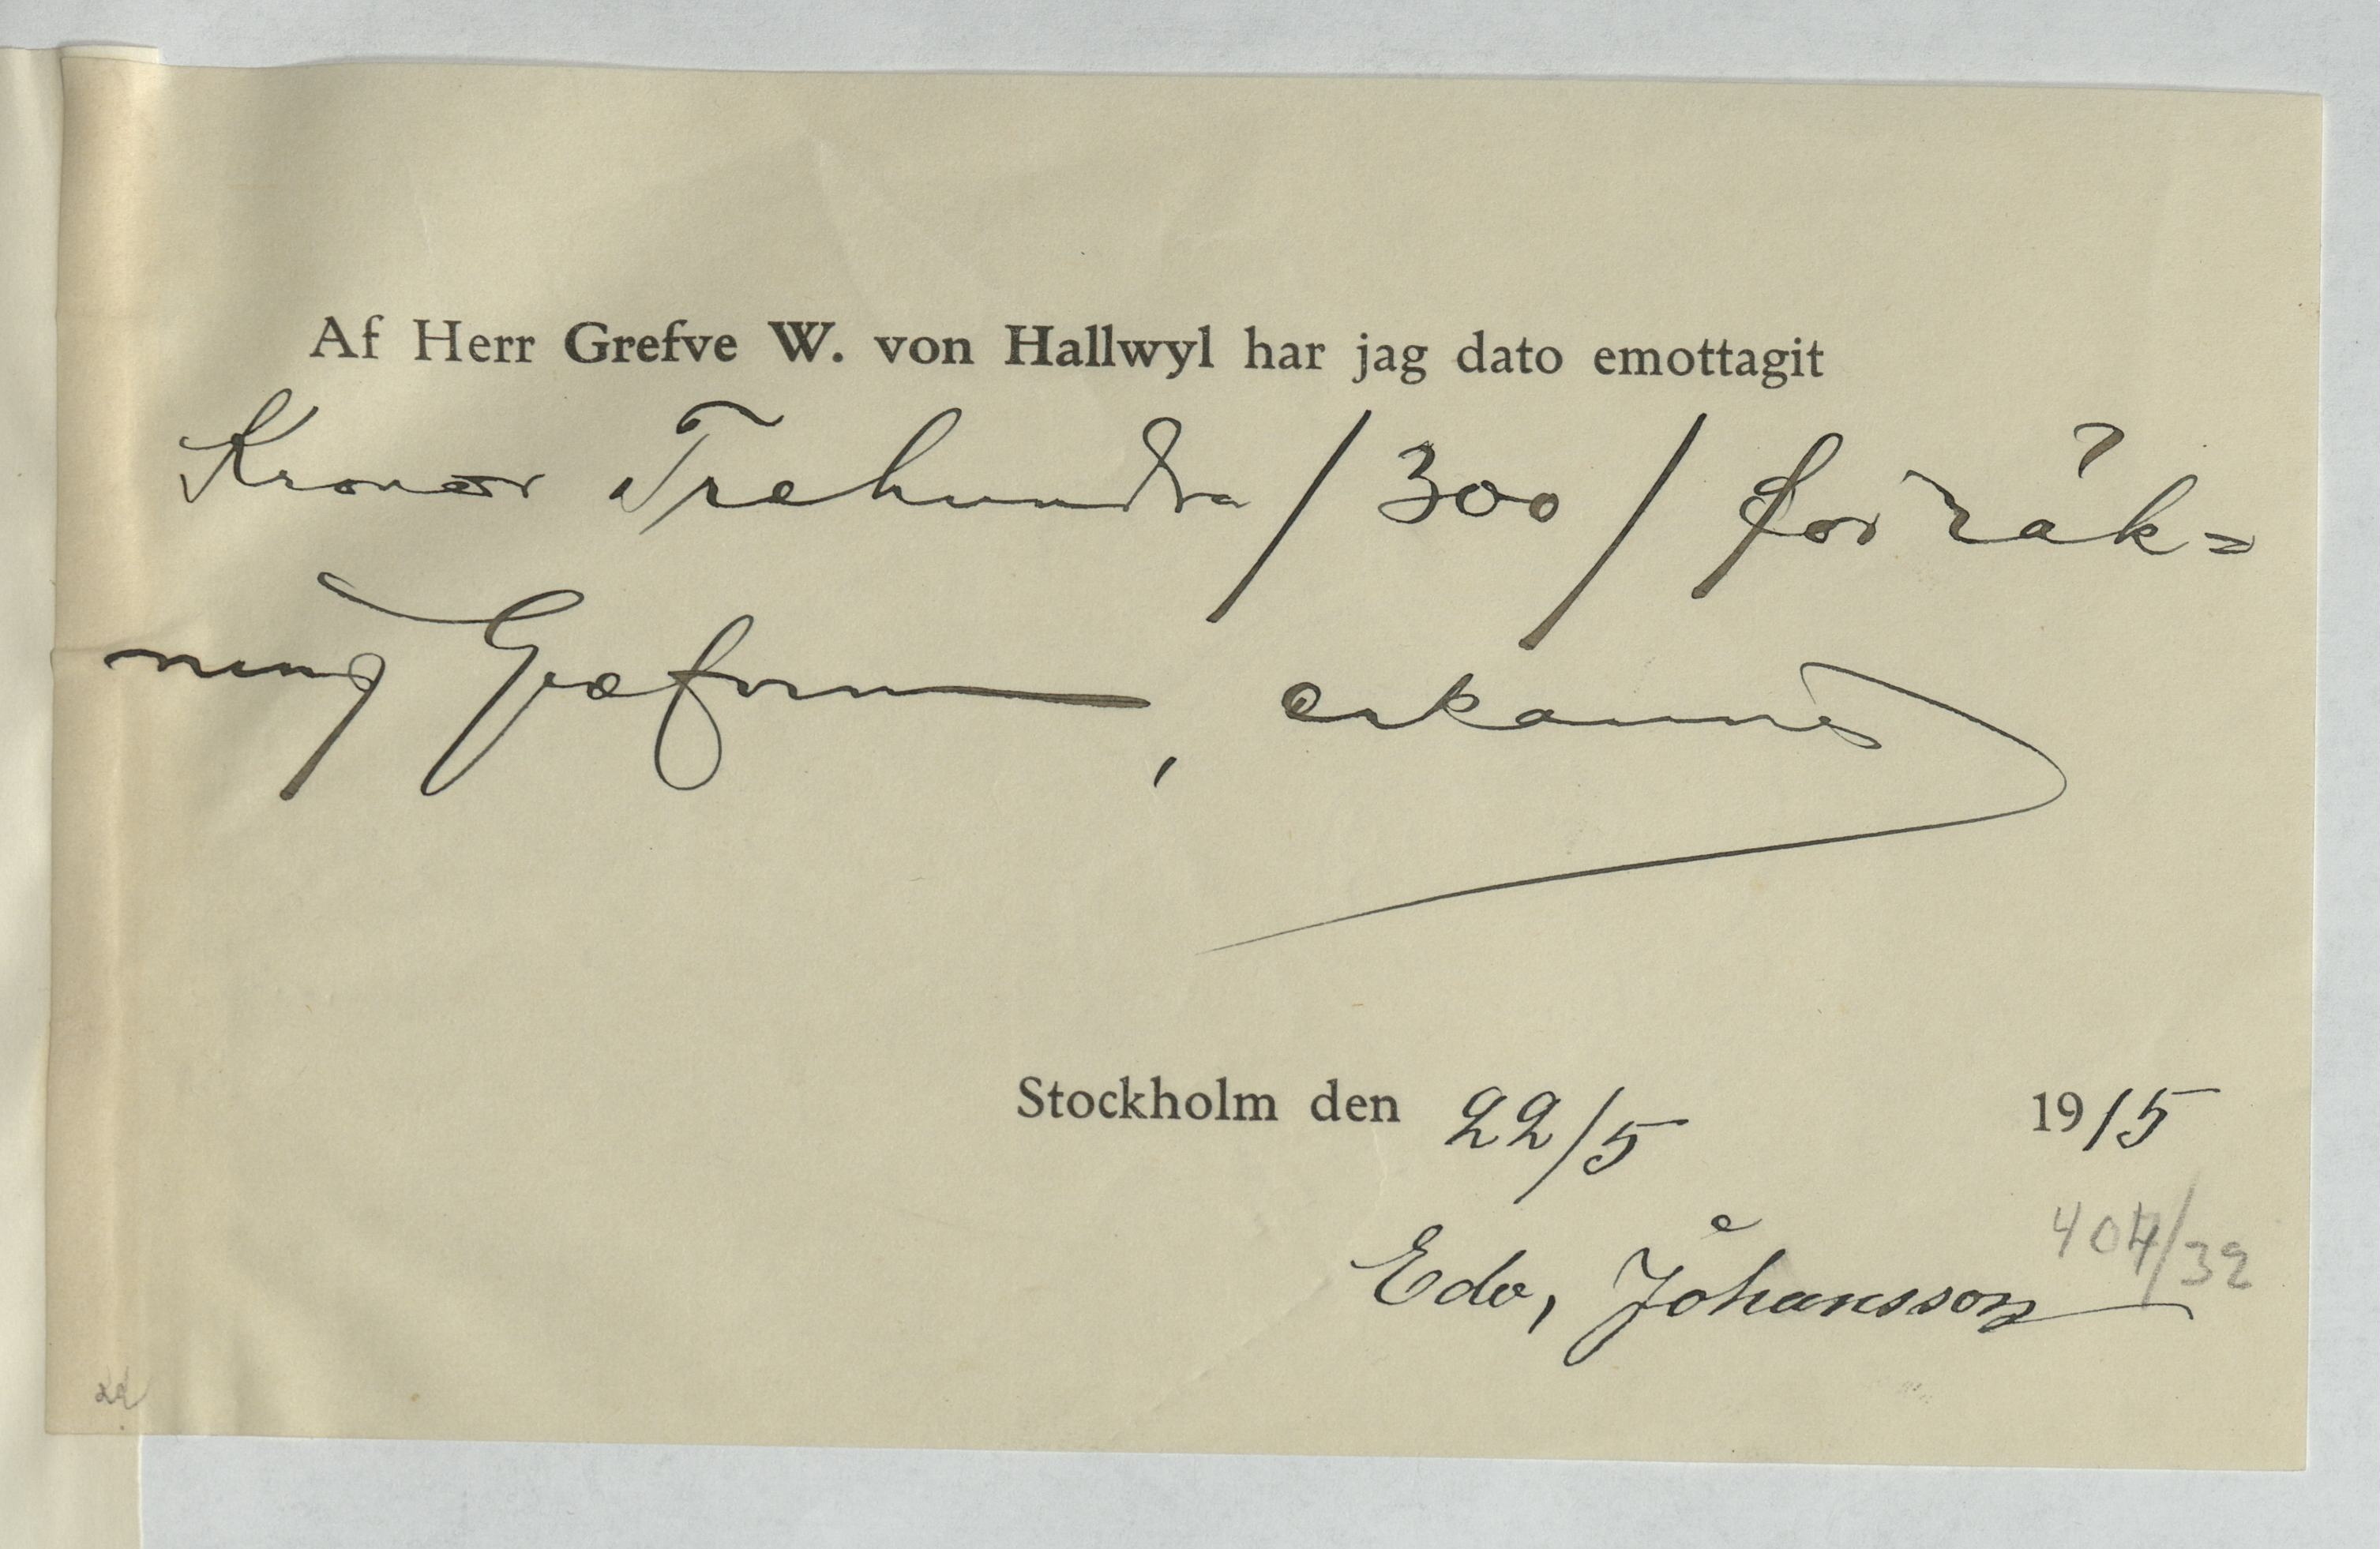 Af Herr Grefve W. von Hallwyl har jag dato emottagit
Kronor Trehundra / 300 / för räk=
ning Grefvin, erkännes
Stockholm den 22/5 1915
Edv, Johansson
404/32